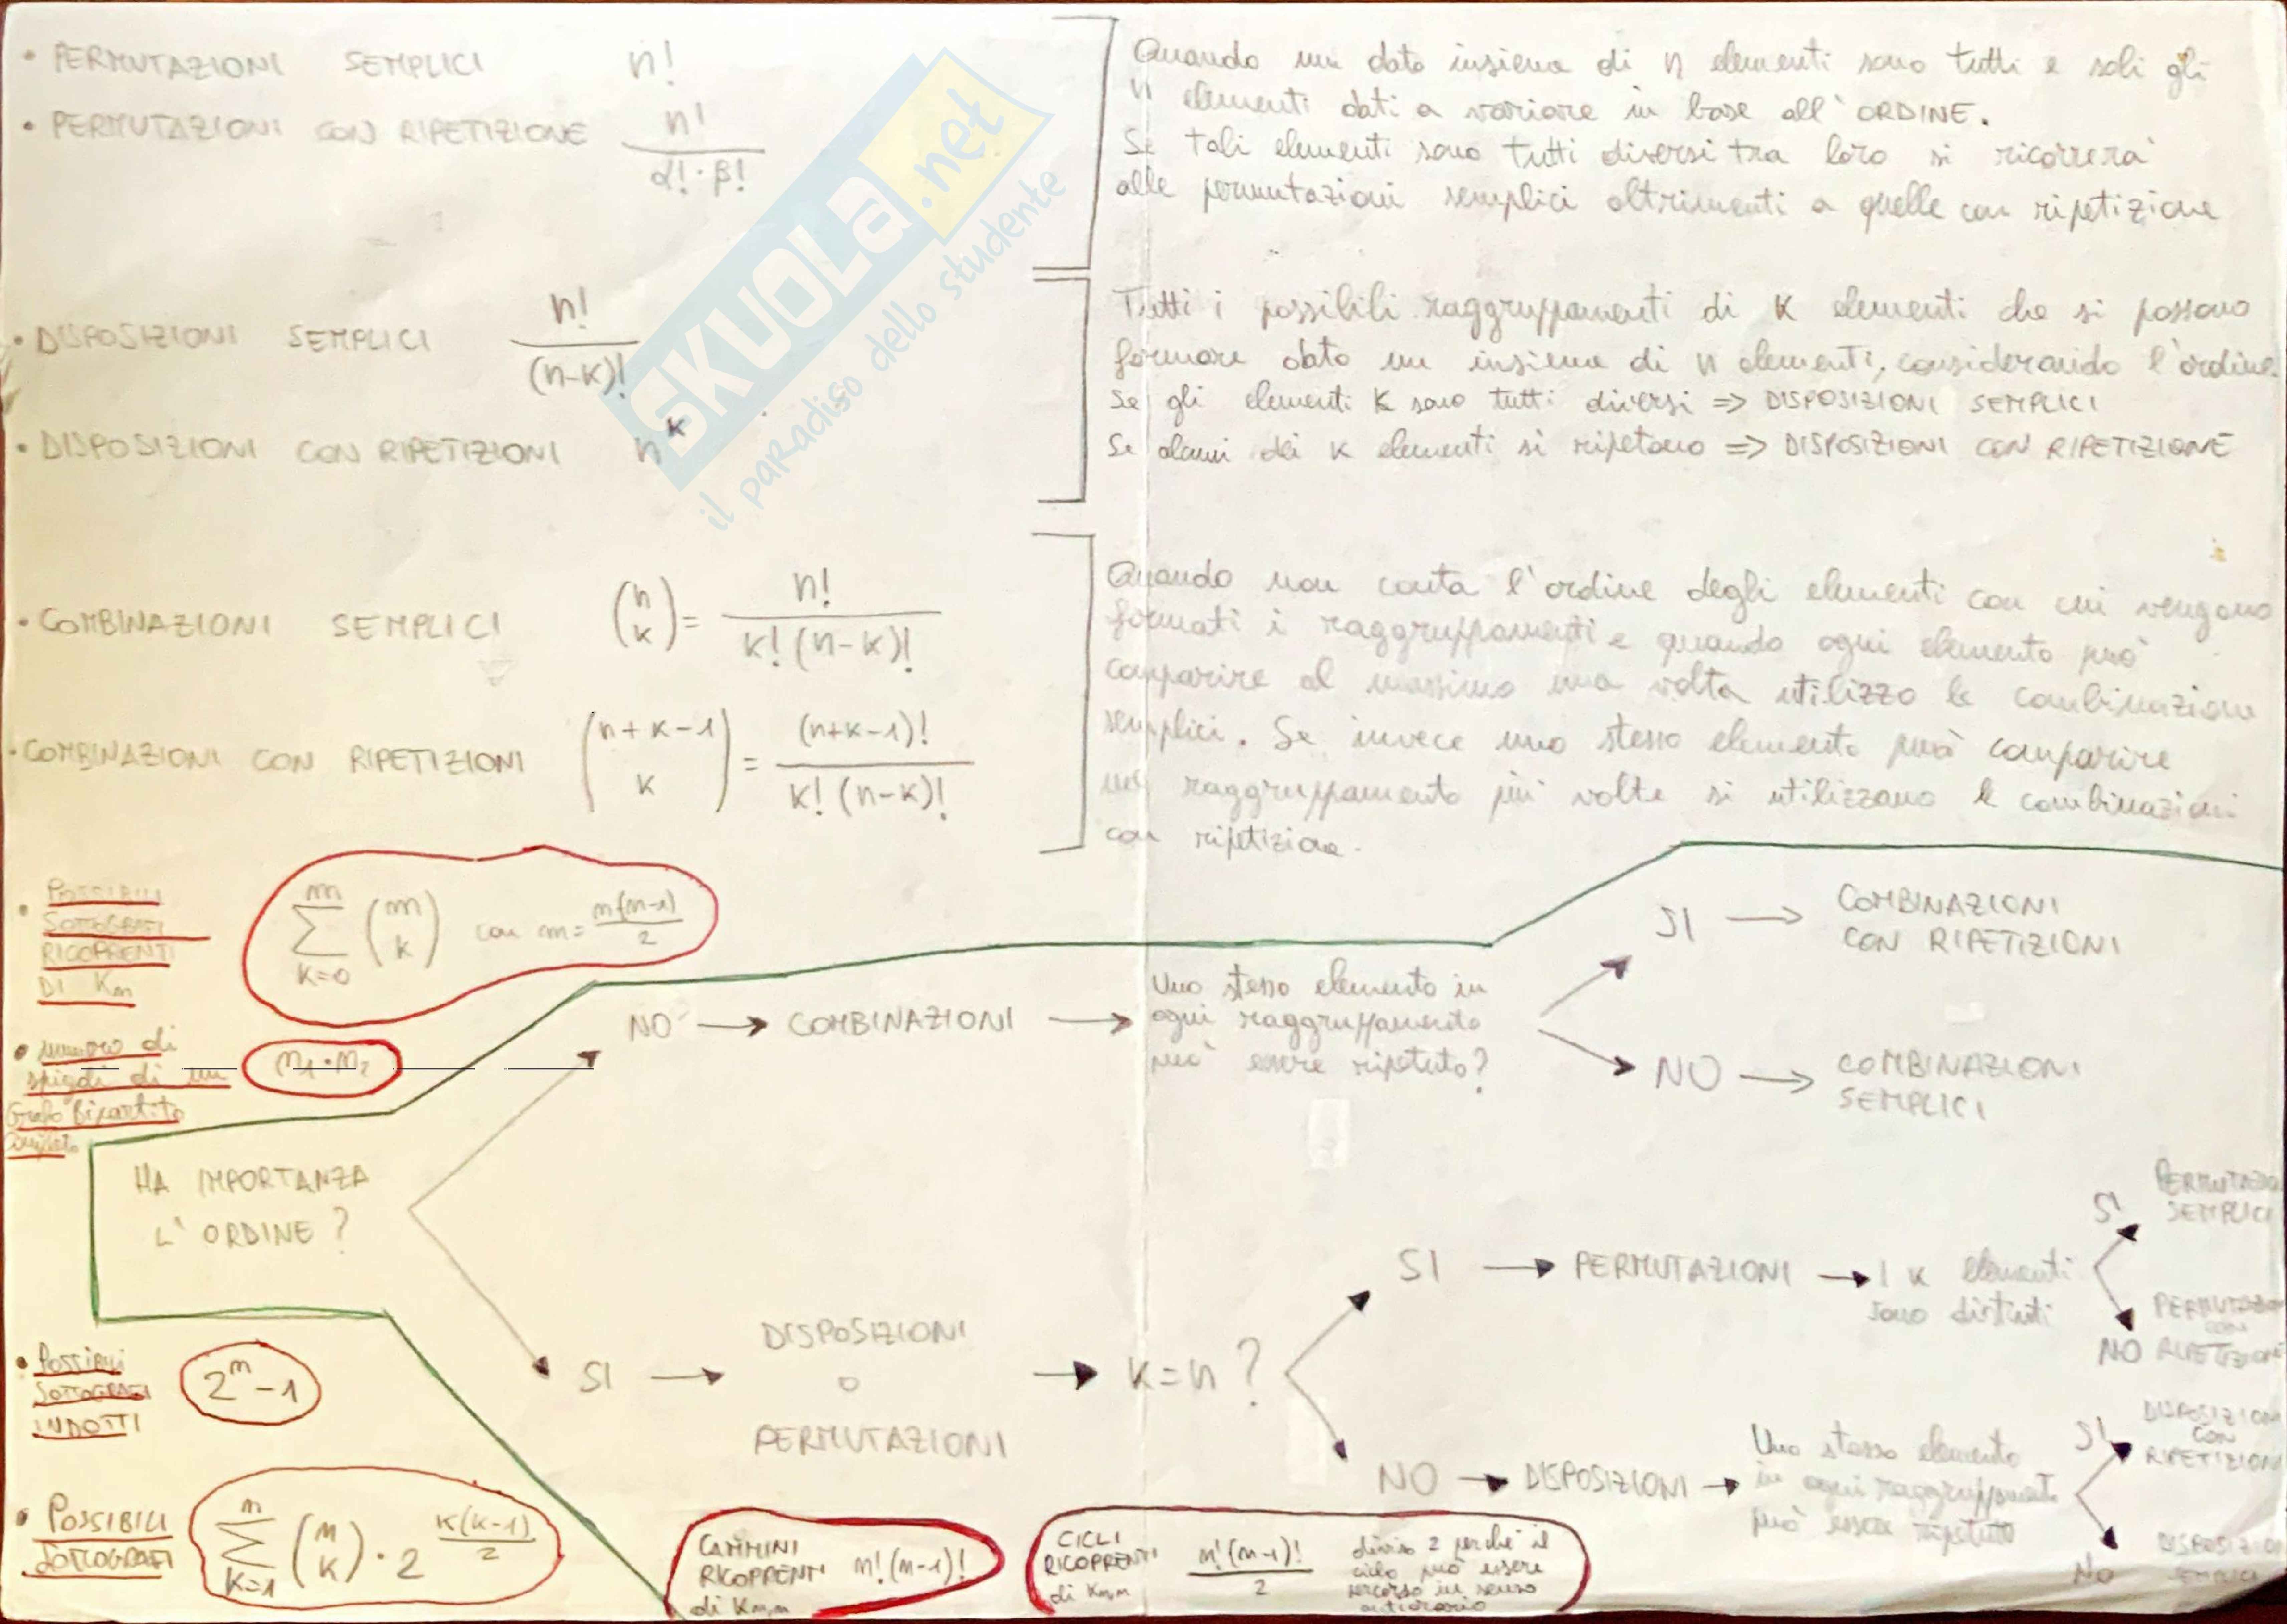 • PERMUTAZIONI SEMPLICI n!
• PERMUTAZIONI CON RIPETIZIONE n! / α!·β!
Quando un dato insieme di n elementi sono tutti e soli gli
n elementi dati a variare in base all'ORDINE.
Se tali elementi sono tutti diversi tra loro si ricorrerà
alle permutazioni semplici altrimenti a quelle con ripetizione
• DISPOSIZIONI SEMPLICI n! / (n-k)!
• DISPOSIZIONI CON RIPETIZIONI n^k
Tutti i possibili raggruppamenti di K elementi che si possono
formare dato un insieme di n elementi, considerando l'ordine.
Se gli elementi K sono tutti diversi => DISPOSIZIONI SEMPLICI
Se alcuni dei K elementi si ripetono => DISPOSIZIONI CON RIPETIZIONE
SKUOLA.net
il paradiso dello studente
• COMBINAZIONI SEMPLICI (n k) = n! / k!(n-k)!
• COMBINAZIONI CON RIPETIZIONI (n+k-1 k) = (n+k-1)! / k!(n-k)!
Quando non conta l'ordine degli elementi con cui vengono
formati i raggruppamenti e quando ogni elemento può
comparire al massimo una volta utilizzo le combinazioni
semplici. Se invece uno stesso elemento può comparire
nel raggruppamento più volte si utilizzano le combinazioni
con ripetizione.
• POSSIBILI
SOTTOGRAFI
RICOPRENTI
DI Kn
m Σ k=0 (m k) con m = n(n-1) / 2
• numero di
spigoli di un
Grafo Bipartito
Completo
n1·n2
HA IMPORTANZA
L'ORDINE?
NO → COMBINAZIONI →
Uno stesso elemento in
ogni raggruppamento
può essere ripetuto?
SI → COMBINAZIONI
CON RIPETIZIONI
NO → COMBINAZIONI
SEMPLICI
SI → DISPOSIZIONI
O
PERMUTAZIONI
→ K=n?
SI → PERMUTAZIONI → I K elementi
sono distinti
SI PERMUTAZIONI
SEMPLICI
NO PERMUTAZIONI
CON
RIPETIZIONI
NO → DISPOSIZIONI →
Uno stesso elemento
in ogni raggruppamento
può essere ripetuto
SI DISPOSIZIONI
CON
RIPETIZIONI
NO DISPOSIZIONI
SEMPLICI
• POSSIBILI
SOTTOGRAFI
INDOTTI
2^n - 1
• POSSIBILI
SOTTOGRAFI
n Σ k=1 (n k) · 2^(k(k-1)/2)
CAMMINI
RICOPRENTI n!(n-1)!
di Kn,n
CICLI
RICOPRENTI
di Kn,n
n!(n-1)! / 2
diviso 2 perché il
ciclo può essere
percorso in senso
antiorario